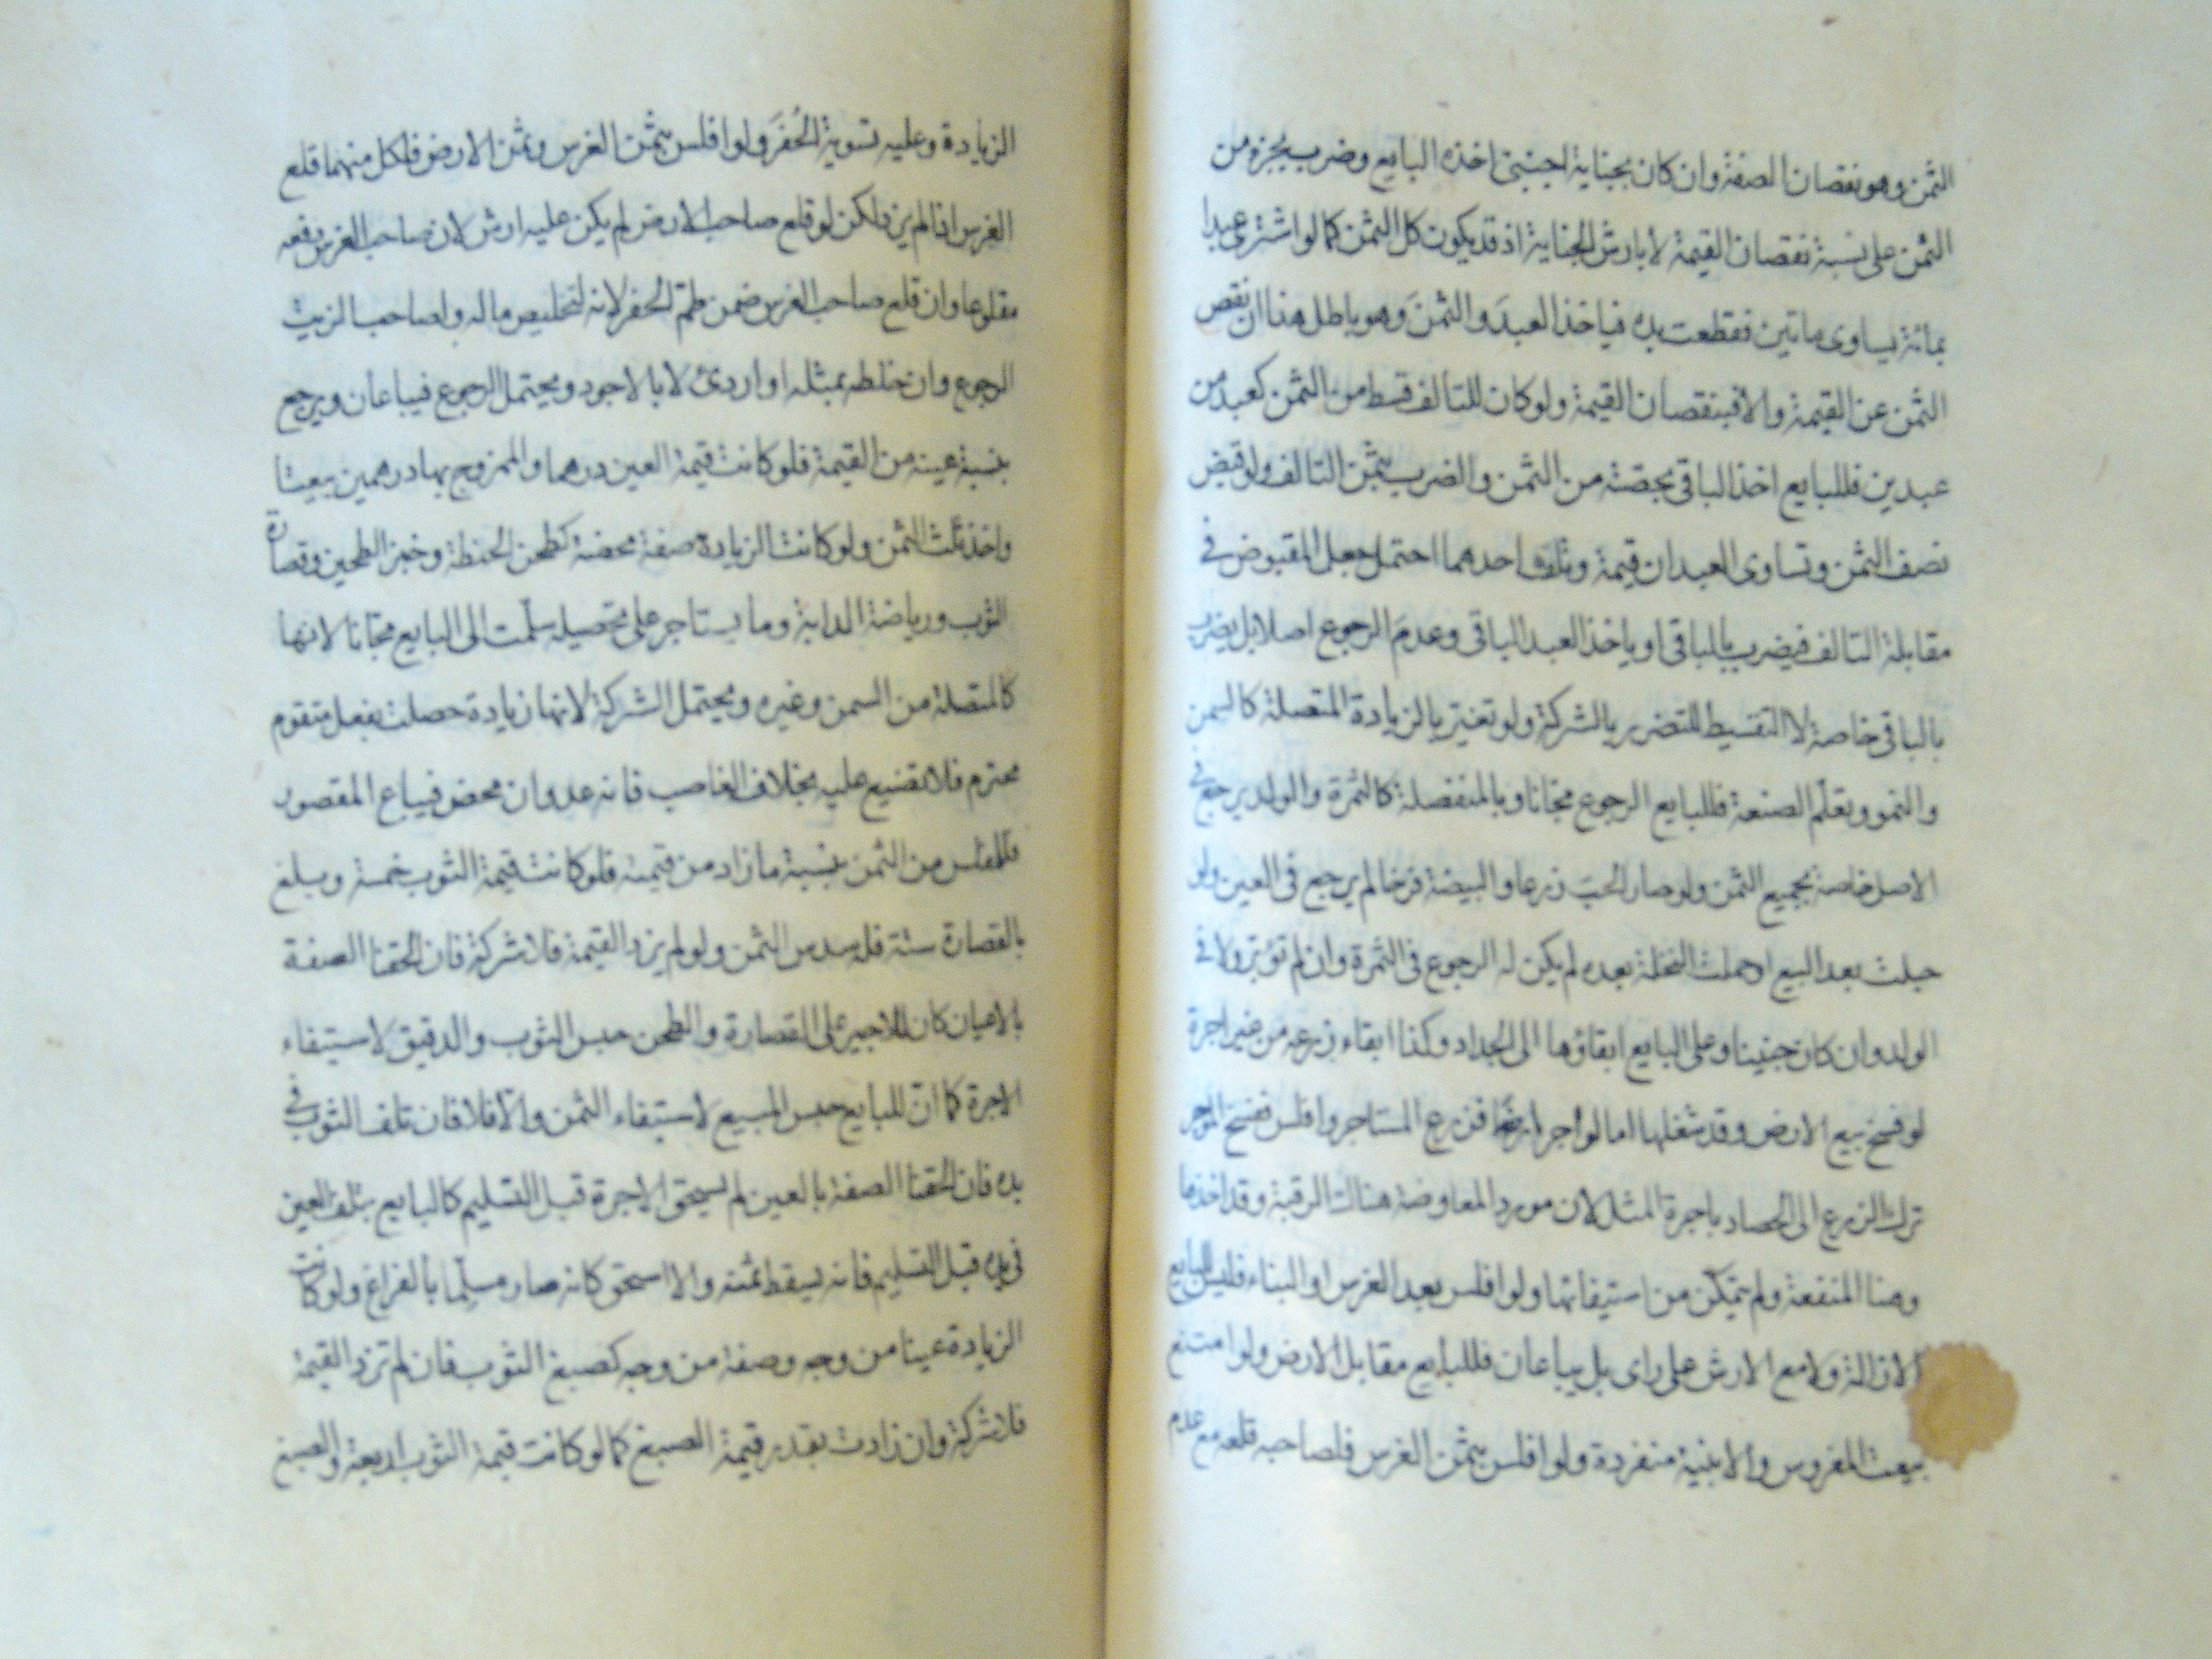 الثمن وهو نقصان الصفة وان كان بجناية اجنبى اخذه البايع وضرب بجزء من
الثمن على نسبة نقصان القيمة لا بارش الجناية اذ قد يكون كل الثمن كما لو اشترى عبدا
بمائة يساوى ماتين فقطعت يده فياخذ العبد والثمن وهو باطل هذا ان نقص
الثمن عن القيمة والا فبنقصان القيمة ولو كان للتالف قسط من الثمن كعبد من
عبدين فللبايع اخذ الباقى بحصته من الثمن والضرب بثمن التالف ولو قبض
نصف الثمن وتساوى العبدان قيمة وتلف احدهما احتمل جعل المقبوض فى
مقابلة التالف فيضرب بالباقى او ياخذ العبد الباقى وعدم الرجوع اصلا بل يضرب
بالباقى خاصة لا التقسيط للتضرر بالشركة ولو تغير بالزيادة المتصلة كالسمن
والنمو وتعلم الصنعة فللبايع الرجوع مجانا وبالمنفصلة كالثمرة والولد يرجع فى
الاصل خاصة بجميع الثمن ولو صار الحب زرعا والبيضة فرخا لم يرجع فى العين ولو
حبلت بعد البيع او حملت النخلة بعده لم يكن له الرجوع فى الثمرة وان لم تؤبر ولا فى
الولد وان كان جنينا وعلى البايع ابقاؤها الى الجداد وكذا ابقاء زرعه من غير اجرة
لو فسخ بيع الارض وقد شغلها اما لو اجر ارضا فزرع المستاجر وافلس ففسخ الموجر
ترك الزرع الى الحصاد باجرة المثل لان مورد المعاوضة هناك الرقبة وقد اخذها
وهنا المنفعة ولم يتمكن من استيفائها ولو افلس بعد الغرس او البناء فليس للبايع
الازالة ولا مع الارش على راى بل يباعان فللبايع مقابل الارض ولو امتنع
بيعت الغروس والابنية منفردة ولو افلس بثمن الغرس فلصاحبه قلعه مع عدم
الزيادة وعليه تسوية الحفر ولو افلس بثمن الغرس وثمن الارض فلكل منهما قلع
الغرس اذا لم يزد ولكن لو قلع صاحب الارض لم يكن عليه ارش لان صاحب الغرس دفعه
مقلوعا وان قلع صاحب الغرس ضمن طم الحفر لانه لتخليص ماله ولصاحب الزيت
الرجوع وان خلطه بمثله او اردئ لا بالاجود ويحتمل الرجوع فيباعان ويرجع
بنسبة عينه من القيمة فلو كانت قيمة العين درهما والممزوج بها درهمين بيعتا
واخذ ثلث الثمن ولو كانت الزيادة صفة محضة كطحن الحنطة وخبز الطحين وقصارة
الثوب ورياضة الدابة وما يستاجر على تحصيله سلمت الى البايع مجانا لانها
كالمتصلة من السمن وغيره ويحتمل الشركة لانها زيادة حصلت بفعل متقوم
محترم فلا تضيع عليه بخلاف الغاصب فانه عدوان محض فيباع المقصور
فللمفلس من الثمن بنسبة ما زاد من قيمته فلو كانت قيمة الثوب خمسة وبلغ
بالقصارة ستة فله سدس الثمن ولو لم يزد القيمة فلا شركة فان الحقنا الصفة
بالاعيان كان للاجير على القصارة والطحن حبس الثوب والدقيق لاستيفاء
الاجرة كما ان للبايع حبس المبيع لاستيفاء الثمن والا فلا فان تلف الثوب فى
يده فان الحقنا الصفة بالعين لم يستحق الاجرة قبل التسليم كالبايع يتلف العين
فى يده قبل التسليم فانه يسقط ثمنه والا استحق كانه صار مسلما بالفراغ ولو كانت
الزيادة عينا من وجه وصفة من وجه كصبغ الثوب فان لم تزد القيمة
فلا شركة وان زادت بقدر قيمة الصبغ كما لو كانت قيمة الثوب اربعة والصبغ